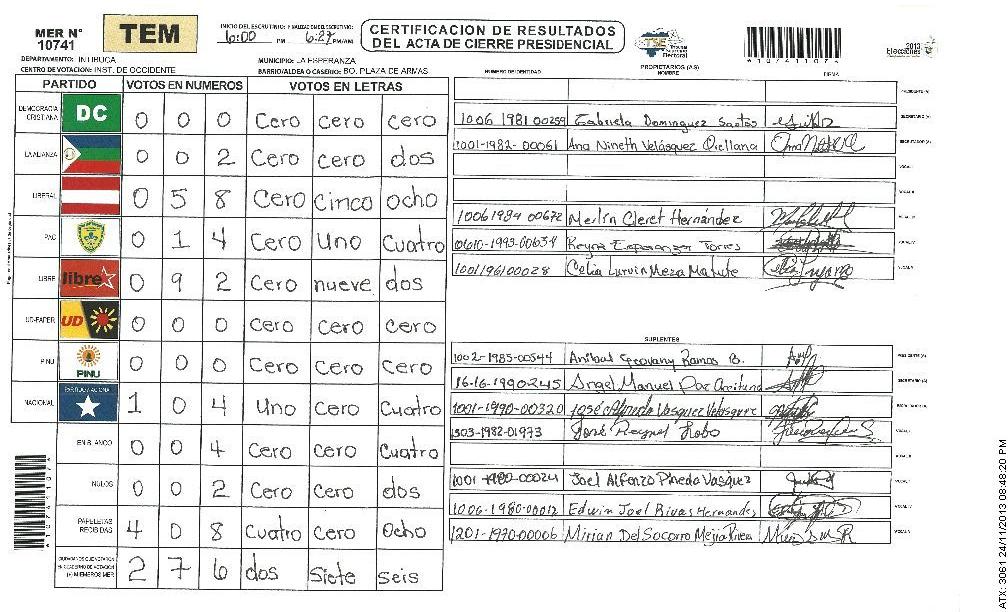 MER N° 10741
TEM
INICIO DEL ESCRUTINIO: FINALIZACION DEL ESCRUTINIO:
6:00 PM 6:27 PM/AM
CERTIFICACION DE RESULTADOS
DEL ACTA DE CIERRE PRESIDENCIAL
Tribunal Supremo Electoral
*10741107*
2013 Elecciones
DEPARTAMENTO: INTIBUCA
MUNICIPIO: LA ESPERANZA
CENTRO DE VOTACION: INST. DE OCCIDENTE
BARRIO/ALDEA O CASERIO: BO. PLAZA DE ARMAS
PROPIETARIOS (AS)
NUMERO DE IDENTIDAD NOMBRE FIRMA
PARTIDO VOTOS EN NUMEROS VOTOS EN LETRAS
DEMOCRACIA CRISTIANA DC 0 0 0 Cero cero cero
LA ALIANZA 0 0 2 Cero cero dos
LIBERAL 0 5 8 Cero Cinco ocho
PAC 0 1 4 Cero Uno Cuatro
LIBRE libre 0 9 2 Cero nueve dos
UD-FAPER UD 0 0 0 Cero Cero Cero
PINU PINU 0 0 0 Cero Cero Cero
NACIONAL PARTIDO NACIONAL 1 0 4 Uno Cero Cuatro
EN BLANCO 0 0 4 Cero Cero Cuatro
NULOS 0 0 2 Cero Cero dos
PAPELETAS RECIBIDAS 4 0 8 Cuatro Cero Ocho
CIUDADANOS QUE VOTARON EN CUADERNO DE VOTACION (+) MIEMBROS MER 2 7 6 dos Siete seis
PRESIDENTE (A)
1006 1981 00259 Gabriela Dominguez Santos SECRETARIO (A)
1001-1982-00061 Ana Nineth Velásquez Orellana ESCRUTADOR (A)
VOCAL I
VOCAL II
1006 1984 00672 Merlin Cleret Hernández VOCAL III
Reyna Esperanza Torres VOCAL IV
1001196100028 Celia Lurvin Meza Matute VOCAL V
SUPLENTES
1002-1985-00544 Anibal Geovany Ramos B. PRESIDENTE (A)
16-16-1990245 Angel Manuel Paz SECRETARIO (A)
1001-1990-00320 José Alfredo Vasquez Velasquez ESCRUTADOR (A)
1303-1982-01973 José Reynel Lobo VOCAL I
VOCAL II
1001-1980-00024 Joel Alfonzo Pineda Vasquez VOCAL III
1006-1980-00012 Edwin Joel Rivas Hernandes VOCAL IV
1201-1970-00006 Mirian Del Socorro Mejia Rivera VOCAL V
*10741107*
ATX: 3061 24/11/2013 08:48:20 PM